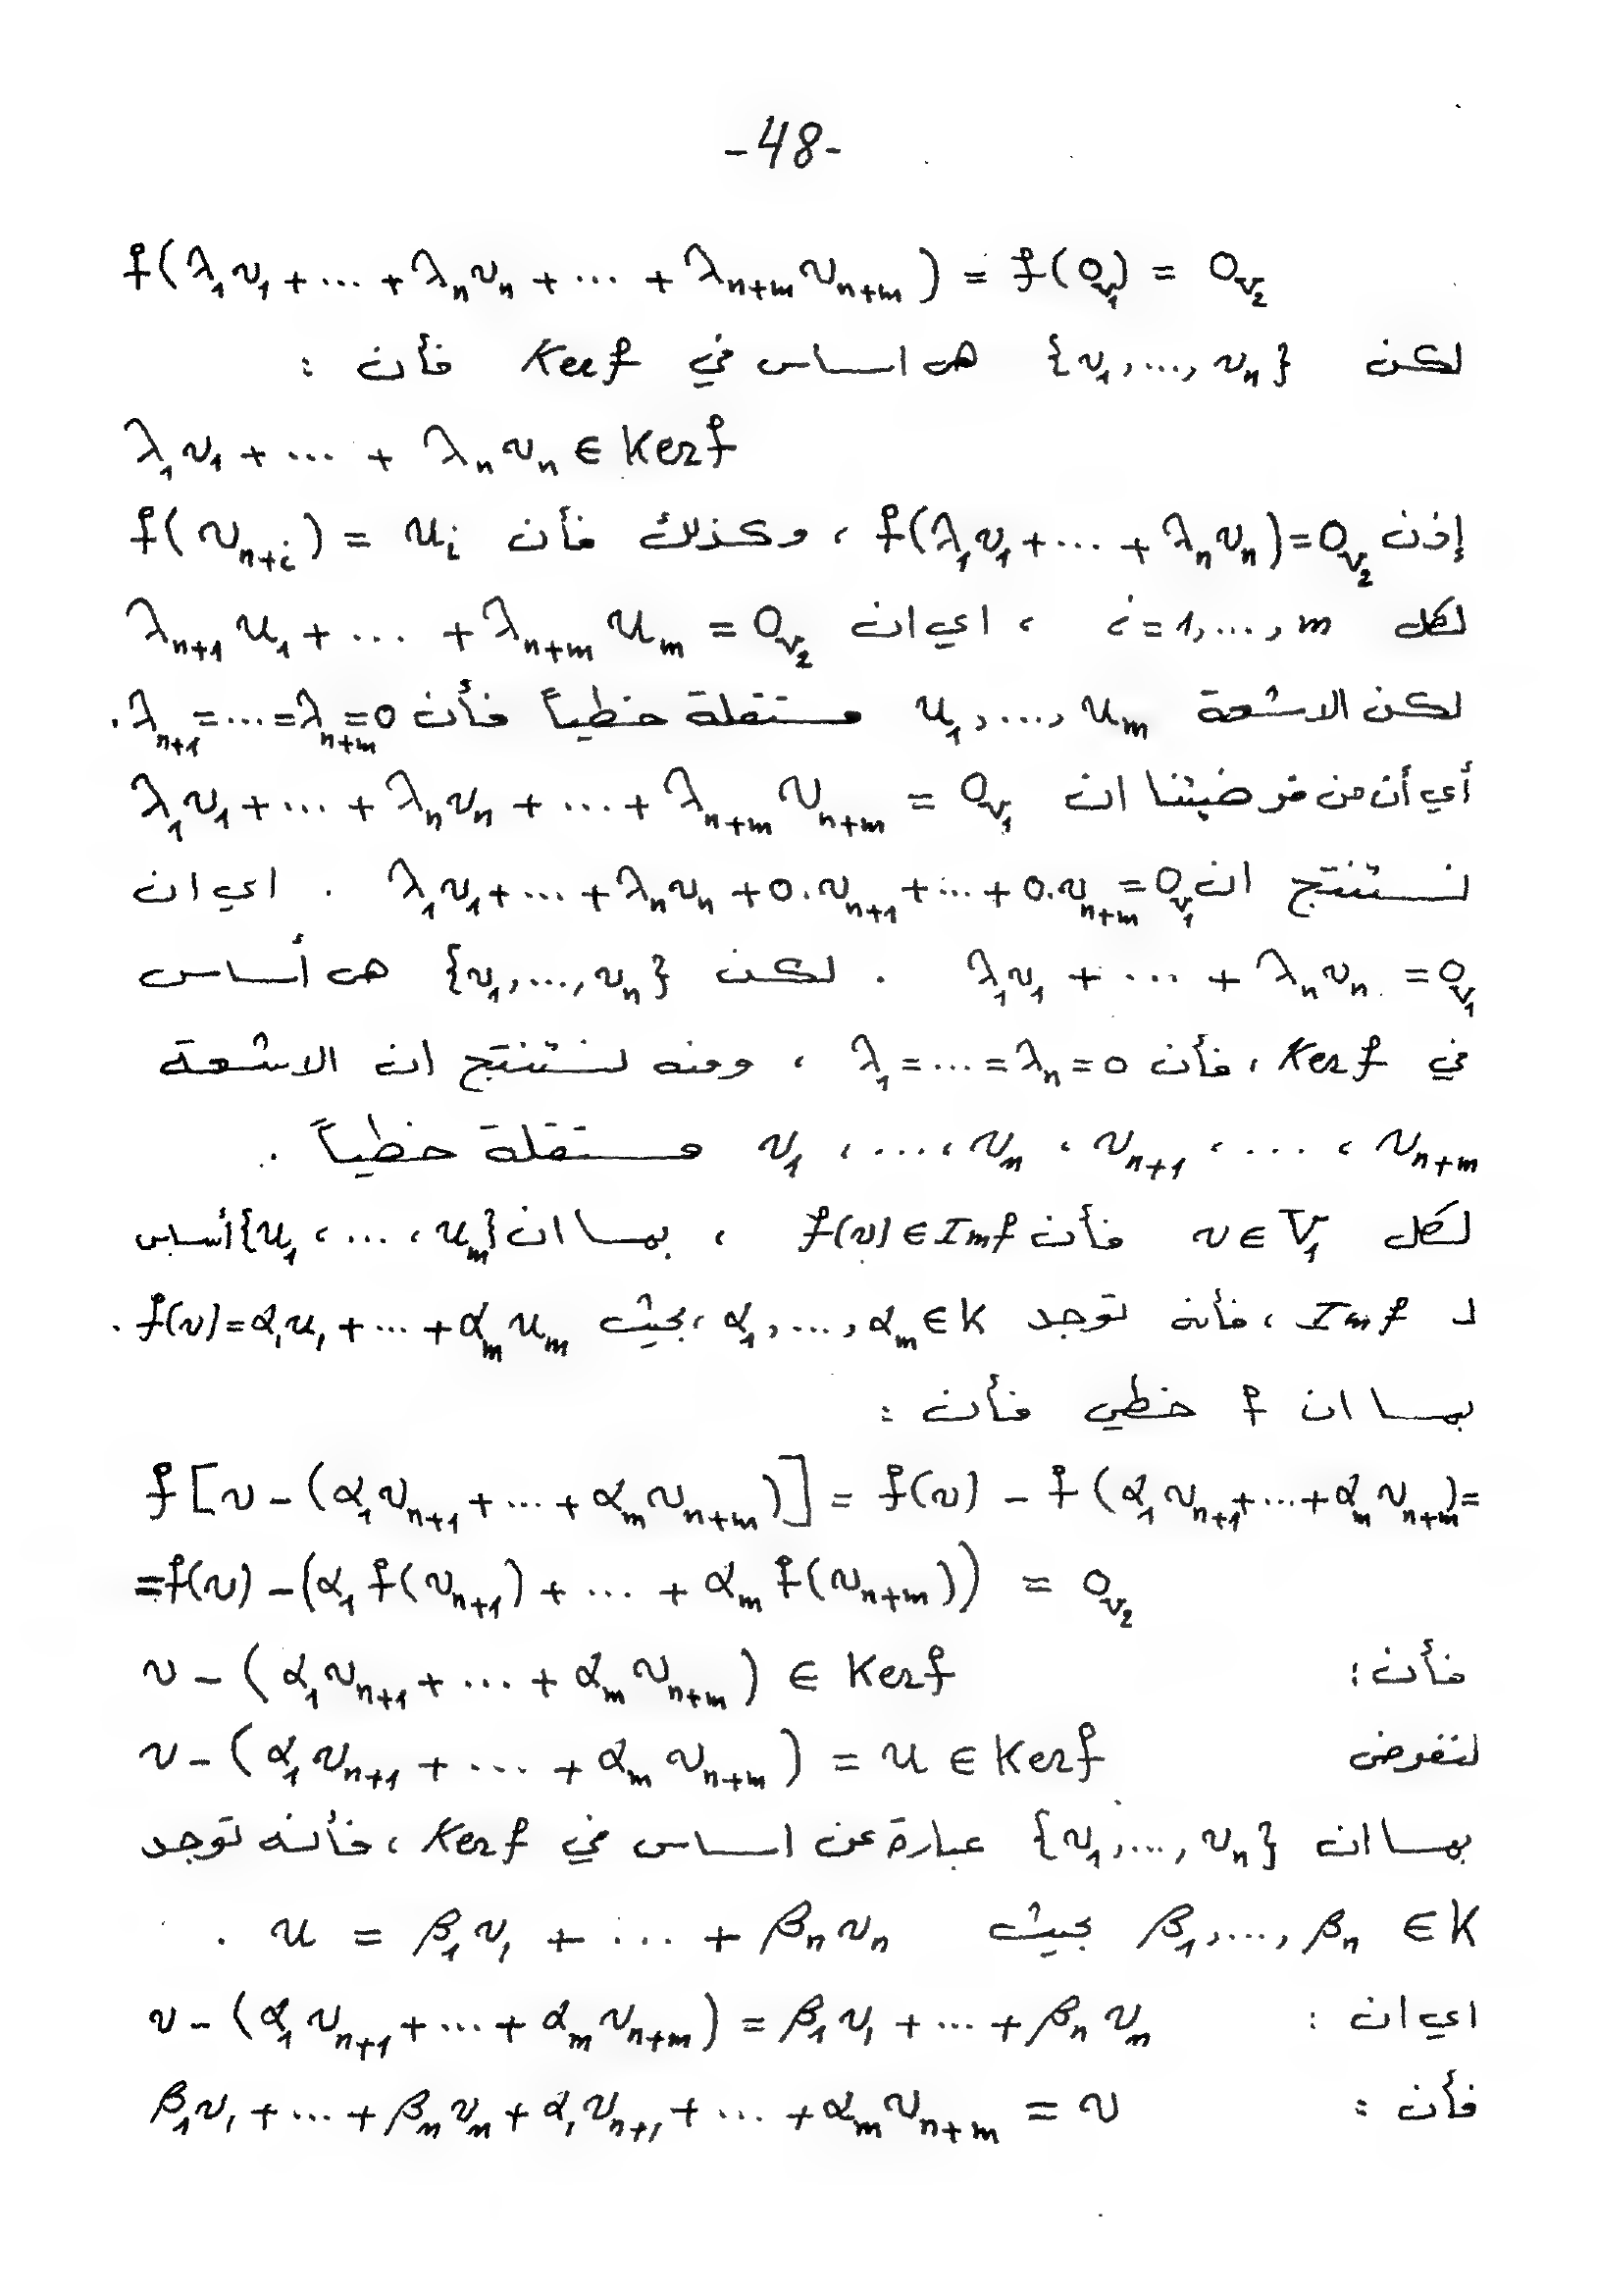 -48-
f(λ₁v₁ + ... + λₙvₙ + ... + λₙ₊ₘvₙ₊ₘ) = f(0_{V₁}) = 0_{V₂}
لكن {v₁, ..., vₙ} هي اساس في Ker f فأن :
λ₁v₁ + ... + λₙvₙ ∈ Ker f
إذن f(λ₁v₁ + ... + λₙvₙ) = 0_{V₂} ، وكذلك فأن f(vₙ₊ᵢ) = uᵢ
لكل i = 1, ..., m ، اي ان λₙ₊₁u₁ + ... + λₙ₊ₘuₘ = 0_{V₂}
لكن الاشعة u₁, ..., uₘ مستقلة خطياً فأن λₙ₊₁ = ... = λₙ₊ₘ = 0 .
أي أن من فرضيتنا ان λ₁v₁ + ... + λₙvₙ + ... + λₙ₊ₘvₙ₊ₘ = 0_{V₁}
نستنتج ان λ₁v₁ + ... + λₙvₙ + 0.vₙ₊₁ + ... + 0.vₙ₊ₘ = 0_{V₁} . اي ان
λ₁v₁ + ... + λₙvₙ = 0_{V₁} . لكن {v₁, ..., vₙ} هي أساس
في Ker f ، فأن λ₁ = ... = λₙ = 0 ، ومنه نستنتج ان الاشعة
v₁ ، ... ، vₙ ، vₙ₊₁ ، ... ، vₙ₊ₘ مستقلة خطياً .
لكل v ∈ V₁ فأن f(v) ∈ Im f ، بما ان {u₁ ، ... ، uₘ} أساس
لـ Im f ، فأنه توجد α₁, ..., αₘ ∈ K ، بحيث f(v) = α₁u₁ + ... + αₘuₘ .
بما ان f خطي فأن :
f[v - (α₁vₙ₊₁ + ... + αₘvₙ₊ₘ)] = f(v) - f(α₁vₙ₊₁ + ... + αₘvₙ₊ₘ) =
= f(v) - (α₁f(vₙ₊₁) + ... + αₘf(vₙ₊ₘ)) = 0_{V₂}
فأن : v - (α₁vₙ₊₁ + ... + αₘvₙ₊ₘ) ∈ Ker f
لنفرض v - (α₁vₙ₊₁ + ... + αₘvₙ₊ₘ) = u ∈ Ker f
بما ان {v₁, ..., vₙ} عبارة عن اساس في Ker f ، فأنه توجد
β₁, ..., βₙ ∈ K بحيث u = β₁v₁ + ... + βₙvₙ .
اي ان : v - (α₁vₙ₊₁ + ... + αₘvₙ₊ₘ) = β₁v₁ + ... + βₙvₙ
فأن : β₁v₁ + ... + βₙvₙ + α₁vₙ₊₁ + ... + αₘvₙ₊ₘ = v